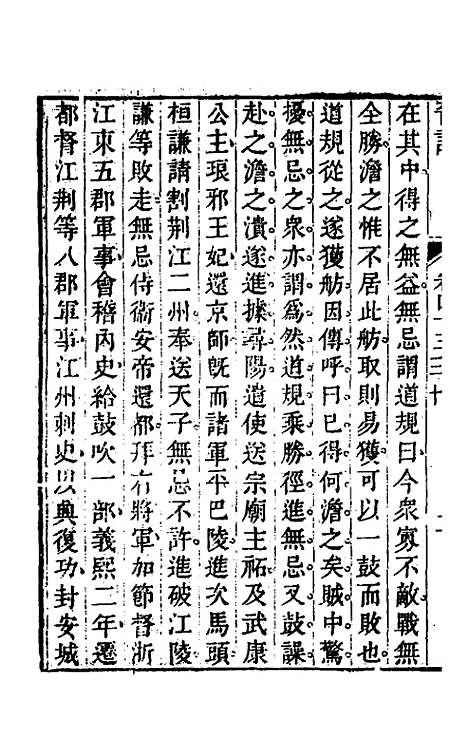 在其中得之無益無忌謂道規曰今衆寡不敵戰無
全勝澹之惟不居此舫取則易獲可以一鼓而敗也
道規從之遂獲舫因傳呼曰已得何澹之矣賊中驚
擾無忌之衆亦謂爲然道規乘勝徑進無忌又鼓譟
赴之澹之潰遂進據尋陽遣使送宗廟主祏及武康
公主琅邪王妃還京師旣而諸軍平巴陵進次馬頭
桓謙請割荆江二州奉送天子無忌不許進破江陵
謙等敗走無忌侍衛安帝還都拜右將軍加節督浙
江東五郡軍事會稽內史給鼓吹一部義熙二年遷
都督江荆等八郡軍事江州刺史以興復功封安城